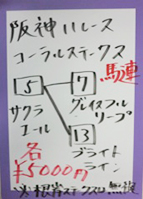 阪神11レース
コーラルステークス
馬連
5 7
サクラエール
グレイスフルリープ
13
ブライトライン
各
¥5000円